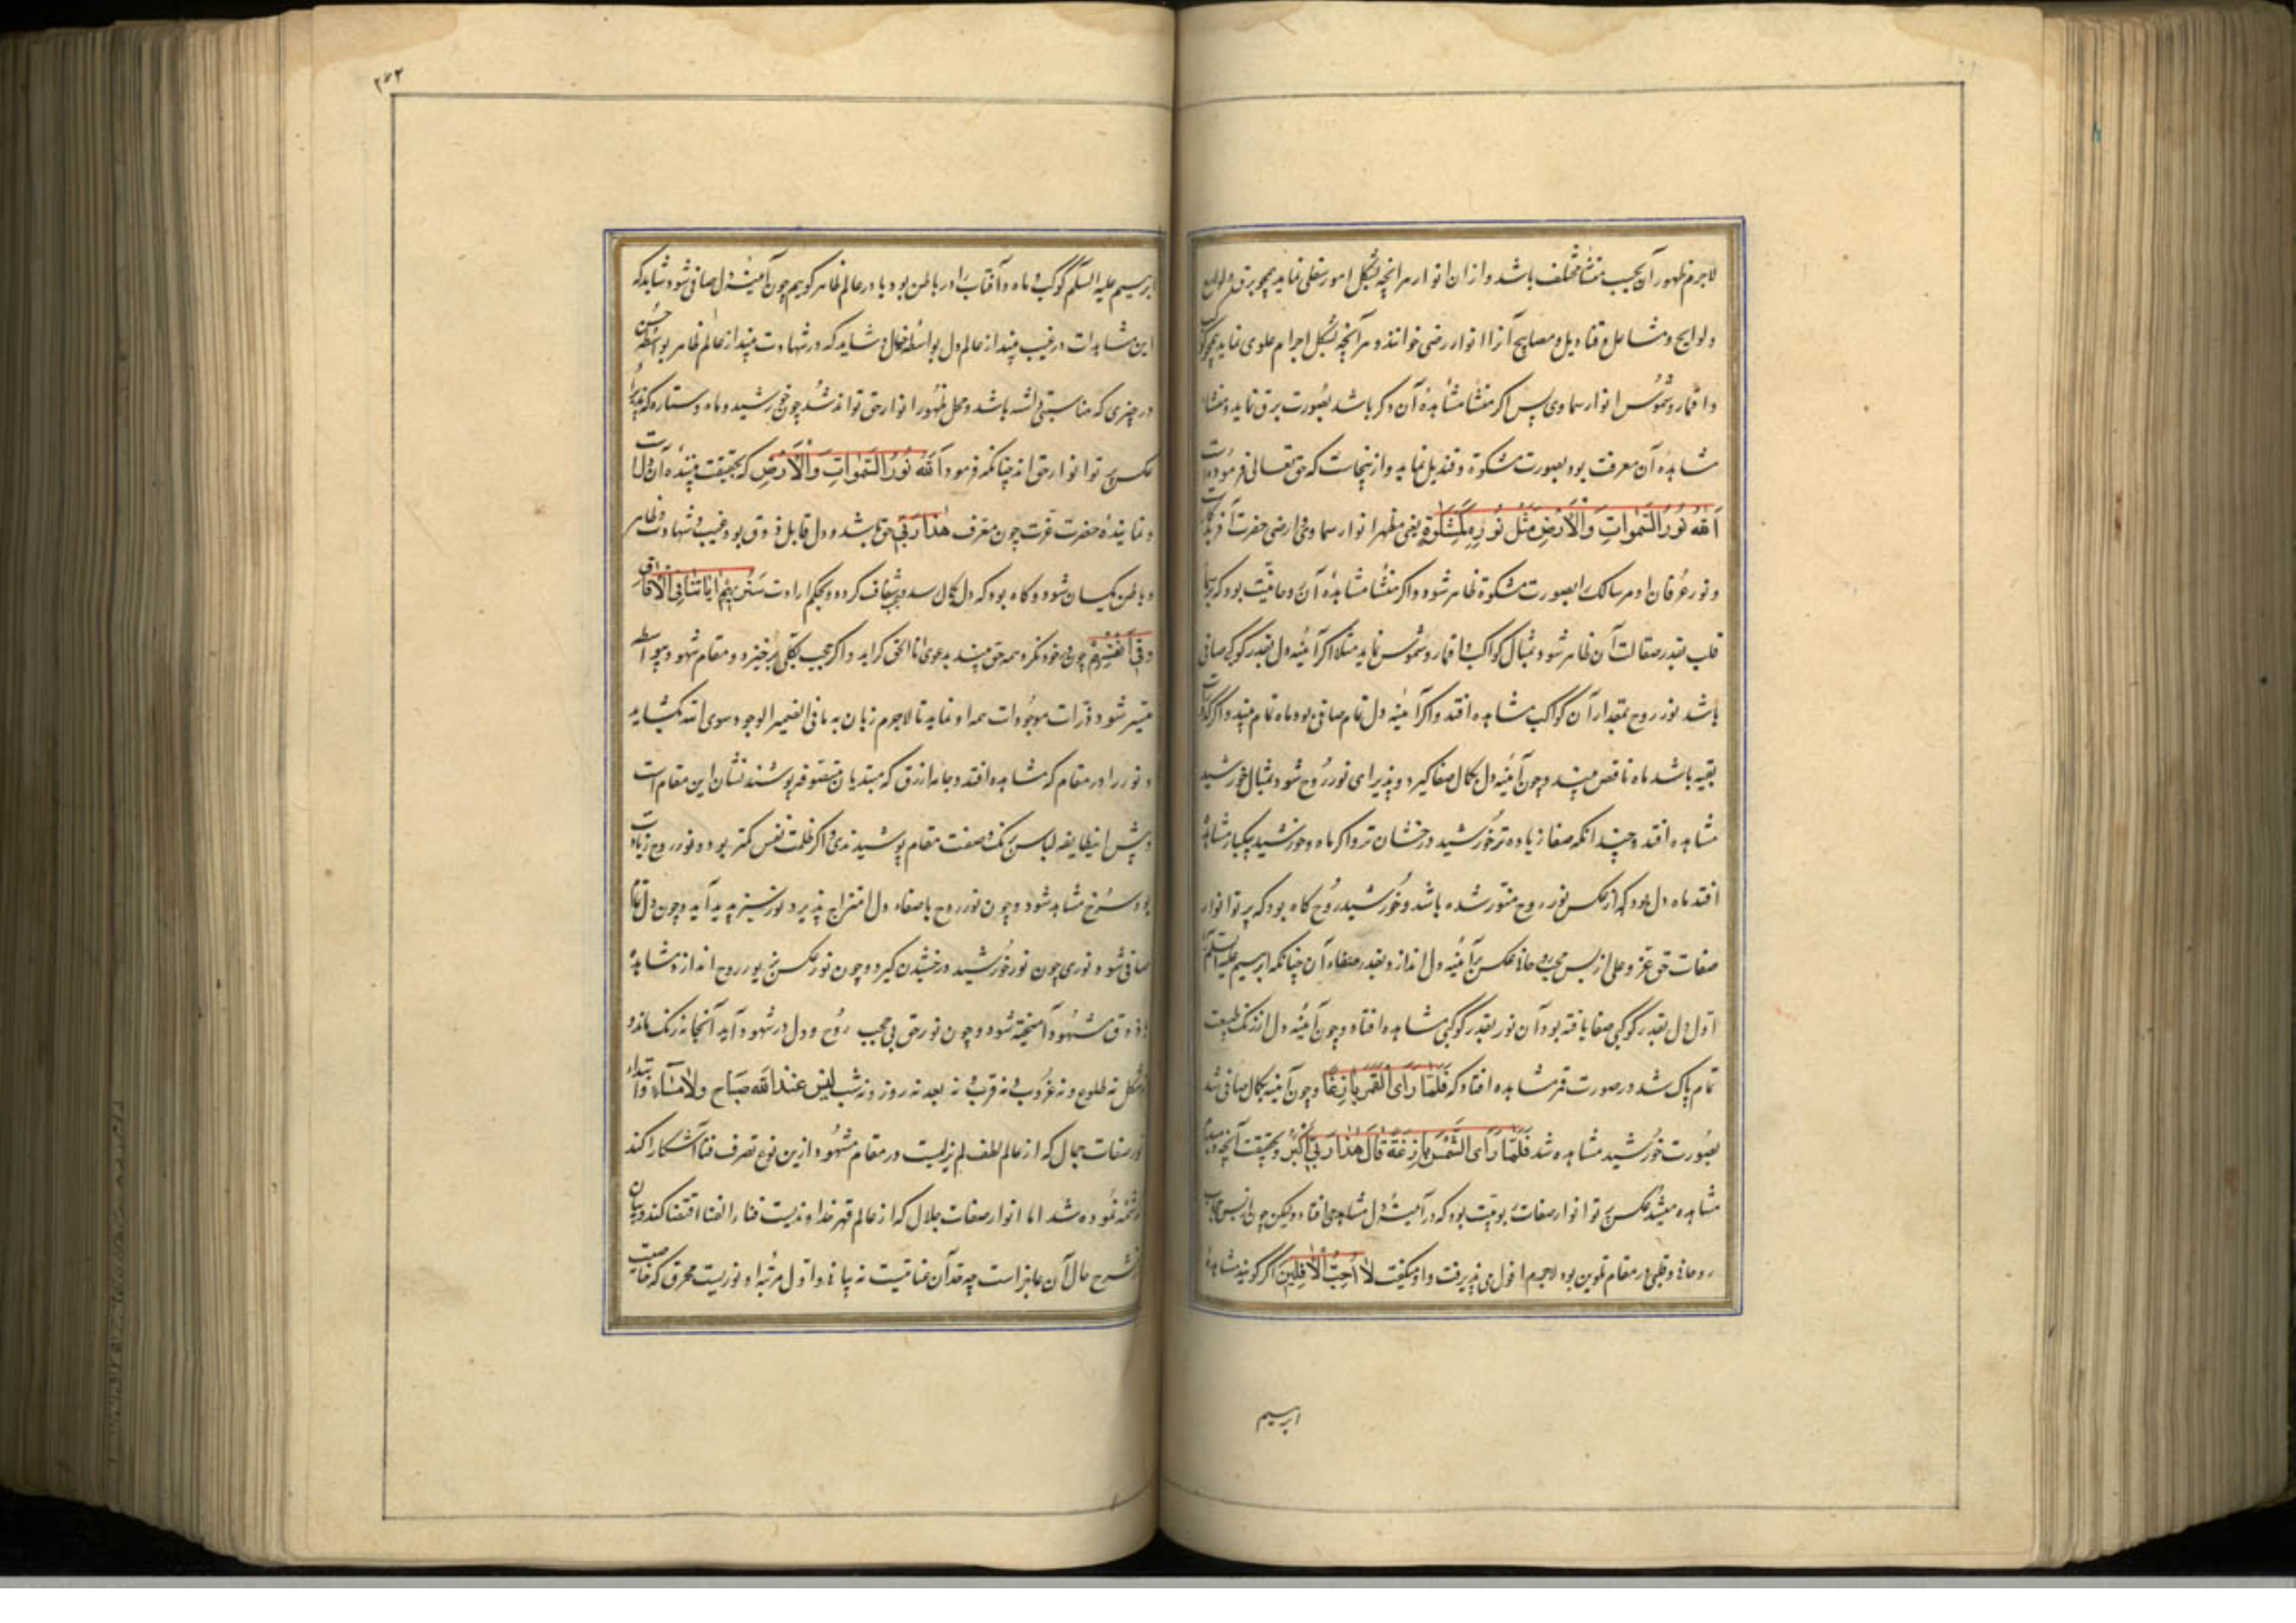 لاجرم ظهور آن بحیب منشأ مختلف باشد و از ان انوار هرانچه بشکل امور سفلی نماید همچو برق و لوامع
و لوایح و مشاعل و قنادیل و مصابیح آنرا انوار ارضی خوانند و هر آنچه بشکل اجرام علوی نماید همچو کواکب
و اقمار و شموس انوار سماوی پس اکر منشأ مشاهدهٔ آن ذکر باشد بصورت برق نماید و منشأ
مشاهدهٔ آن معرفت بود بصورت مشکوة و قندیل نماید و ازینجاست که حق تعالی فرموده است
اَللّٰه نُورُ السَّمٰوات وَالْاَرْضِ مَثَلُ نُورِهِ کَمِشْکٰوةٍ یعنی مظهر انوار سماوی و ارضی حضرت آفریدکارست
و نور عرفان او مر سالک را بصورت مشکوة ظاهر شود و اکر منشأ مشاهدهٔ آن روحانیت بود که بسمای
قلب بقدر صقالت آن ظاهر شود بمثال کواکب و اقمار و شموس نماید مثلا اکر آینهٔ دل بقدر کوکبی صافی
باشد نور روح بمقدار آن کواکب مشاهده افتد و اکر آینهٔ دل تمام صافی بود ماه تمام بیند و اکر کدورات
بقیه باشد ماه ناقص بیند و چون آینهٔ دل بکمال صفا کیرد و پذیرای نور روح شود بمثال خورشید
مشاهده افتد و چندانکه صفا زیاده تر خورشید درخشان تر و اکر ماه و خورشید بیکبار مشاهده
افتد ماه دل بود که از عکس نور روح منور شده باشد و خورشید روح کاه بود که پرتو انوار
صفات حق عز و علی از پس حجب روحانی عکس بر آینهٔ دل اندازد بقدر صفاء آن چنانکه ابرسیم علیه السلم
اول دل بقدر کوکبی صفا یافته بود آن نور بقدر کوکبی مشاهده افتاد و چون آینهٔ دل از زنک طبیعت
تمام پاک شد در صورت قمر مشاهده افتاد که فَلَمّا رَاَی الْقَمَرَ بازِغًا و چون آینه بکمال صافی شد
بصورت خورشید مشاهده شد فَلَمّا رَاَی الشَّمْسَ بازِغَةً قالَ هٰذا رَبّی اَکْبَرُ و بحقیقت آنچه دیده
مشاهده میشد عکس پرتو انوار صفات ربوبیت بود که در آینهٔ دل مشاهده می افتاد ولیکن چون از پس حجاب
روحانی و قلبی در مقام تلوین بود لاجرم افول می پذیرفت و او میکفت لا اُحِبُّ الْاٰفِلینَ اکر کویند مشاهدهٔ
ابرسیم
۲۷۲
ابرسیم علیه السلم کوکب و ماه و آفتاب را در باطن بود یا در عالم ظاهر کوییم چون آینهٔ دل صافی شود شاید که
این مشاهدات در غیب بیند از عالم دل بواسطه خیال و شاید که در شهادت بیند از عالم ظاهر بواسطه حس
در چیزی که مناسبتی داشته باشد و محل ظهور انوار حق تواند شد چون خورشید و ماه و ستاره که پذیرای
عکس پرتو انوار حق اند چنانکه فرمود اَللّٰه نُورُ السَّمٰواتِ وَالْاَرْضِ که بحقیقت بینندهٔ آن دل است
و نمایندهٔ حضرت عزت چون معرف هٰذا رَبّی حق باشد و دل قابل ذوق بود غیب و شهادت و ظاهر
و باطن یکسان شود و کاه بود که دل بکمال رسد و شفاف کردد و بحکم ارادت سَنُریهِمْ اٰیاتِنا فِی الْاٰفاقِ
وَفی اَنْفُسِهِمْ چون در خود نکرد همه حق بیند بدعوی انا الحق کراید و اکر حجب بکلی برخیزد و مقام شهود بیواسطه
میسر شود ذرات موجودات همه او نماید تا لاجرم زبان به ما فی الضمیر الوجود سوی الله بکشاید
و نور را در مقام که مشاهده افتد و جامهٔ ازرق که مبتدیان متصوفه پوشند نشان این مقام است
و پیش این طایفه لباس برنک و صفت مقام پوشیدندی و اکر ظلمت نفس کمتر بود و نور روح زیادت
بود سرخ مشاهد شود و چون نور روح با صفاء دل امتزاج پذیرد نور سبز پدید آید و چون دل تمام
صافی شود نوری چون نور خورشید درخشیدن کیرد و چون نور عکس بر نور روح اندازد مشاهده
با ذوق شهود آمیخته شود و چون نور حق بی حجب روح و دل در شهود آید آنجا نه رنک ماند و
نه شکل نه طلوع و نه غروب نه قرب نه بعد نه روز و نه شب لیس عند الله صباح ولا مساء و ابتداء
نور صفات جمال که از عالم لطف لم یزلیست در مقام شهود ازین نوع تصرف فنا آشکارا کند
و شمه نموده شد اما انوار صفات جلال که از عالم قهر خداوندیست فناء الفنا اقتضا کند و بیان
از شرح حال آن عاجز است چه حد آن عنایتست نه پیانی و اول مرتبه او نوریست محرق که خاصیت